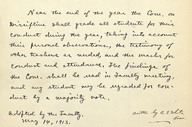 Near the end of the year the Com. on
Discipline shall grade all students for their
conduct during the year, taking into account
their personal observations, the testimony of
other teachers as needed, and the marks for
conduct and attendance. The findings of
the Com. shall be read in faculty meeting,
and any student may be regraded for con-
duct by a majority vote.
Adopted by the Faculty.
May 14, 1913.